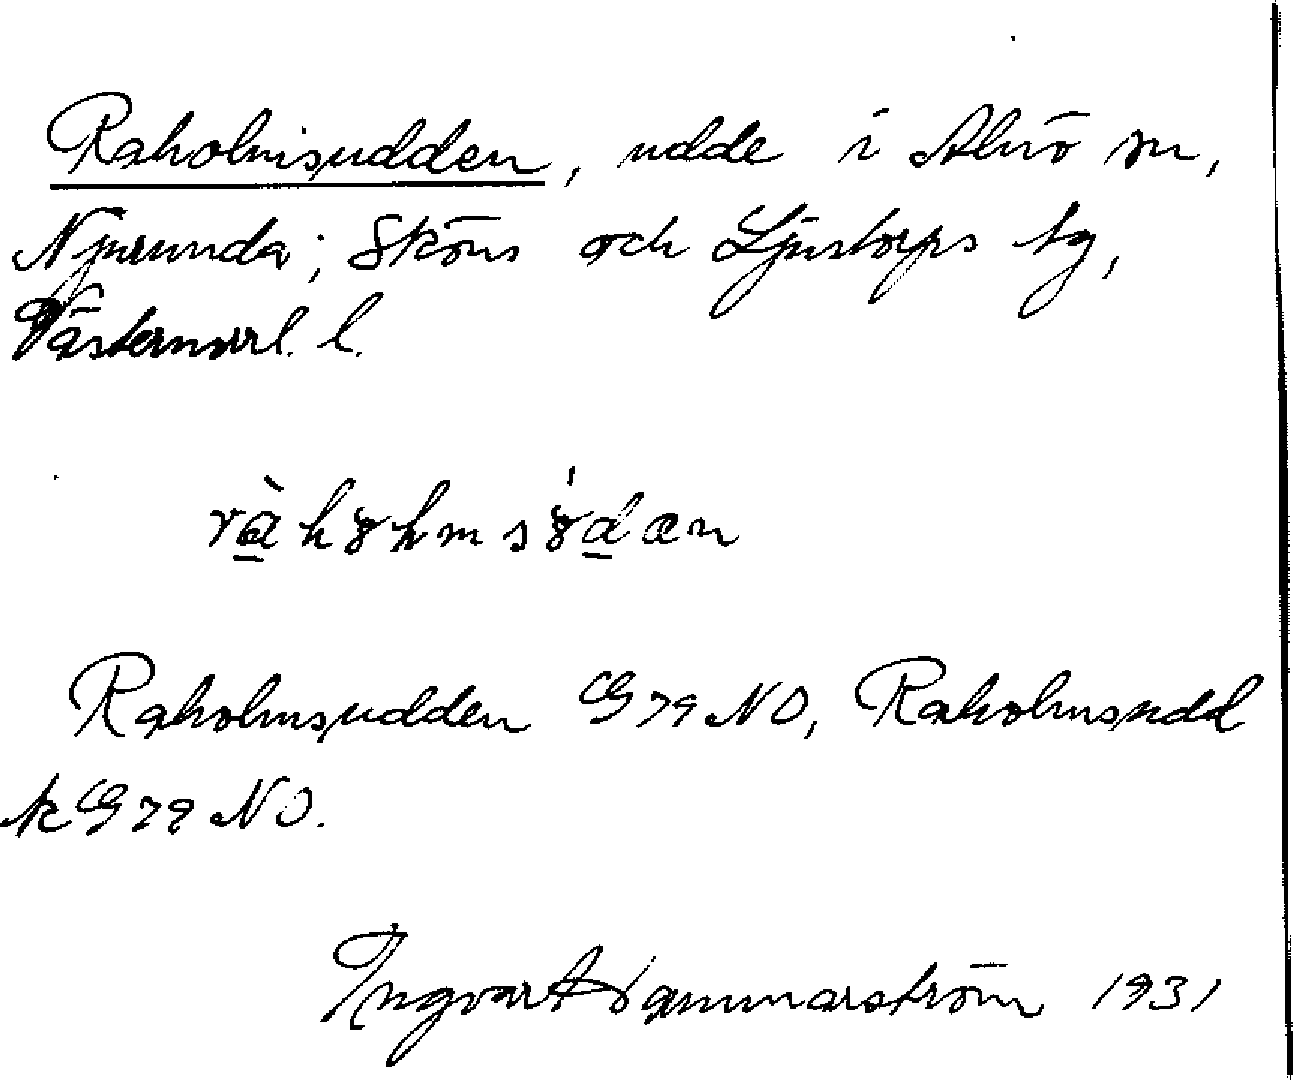 Raholmsudden, udde i Alnö sn,
Njurunda, Sköns och Ljustorps tg,
Västernorrl. l.
Raholmsudden G 79 NO, Raholmsudd
k G 79 NO.
Ingvar Hammarström 1931